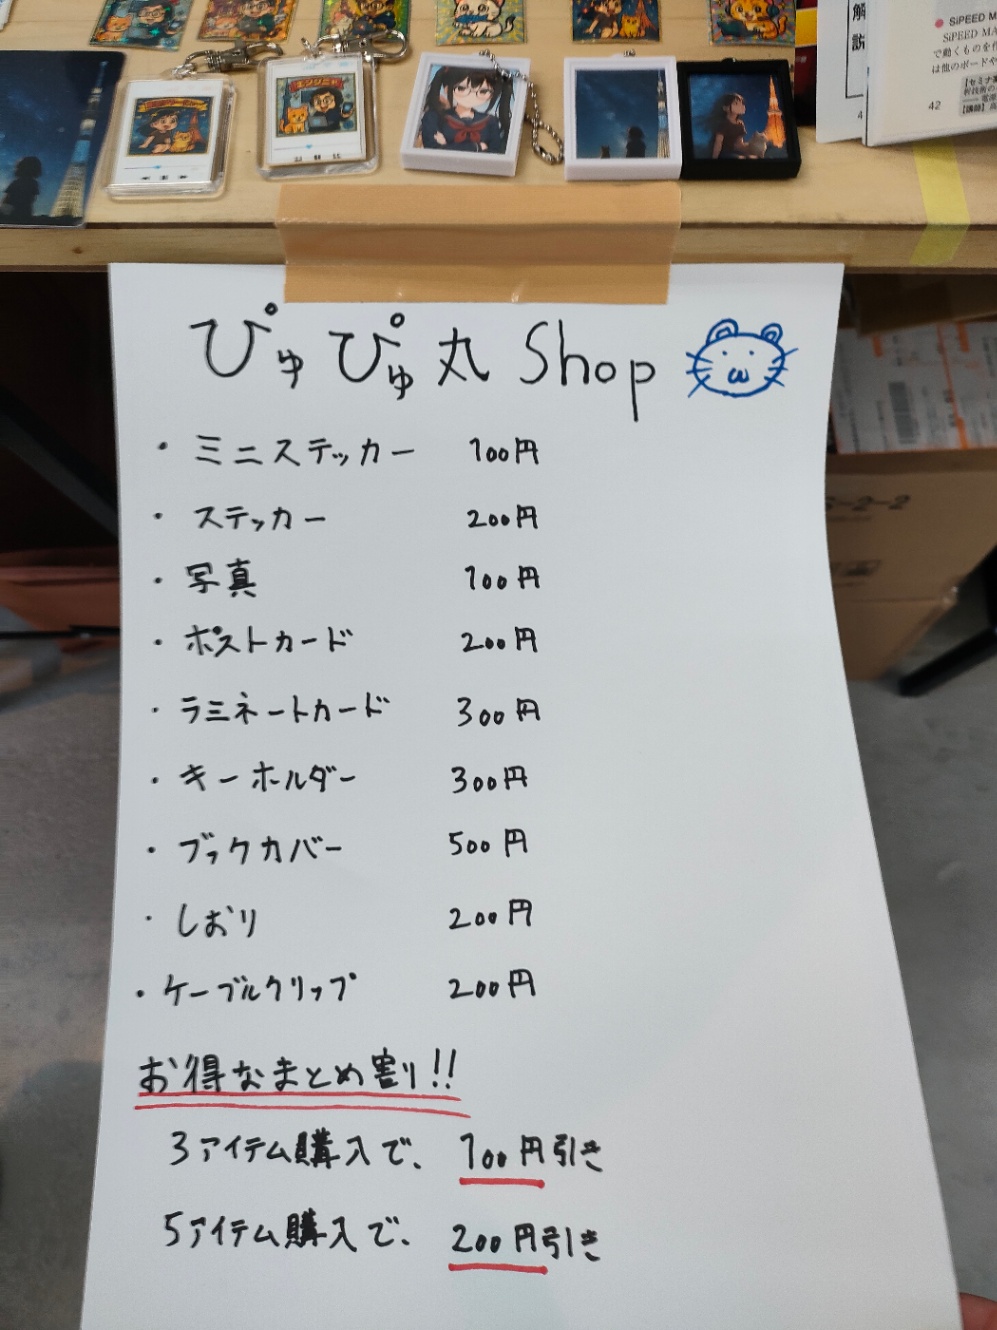 解
説
SiPEED M
SiPEED MA
で動くものを作
は他のボードや
【セミナ
42
ぴゅぴゅ丸 Shop
・ミニステッカー 100円
・ステッカー 200円
・写真 100円
・ポストカード 200円
・ラミネートカード 300円
・キーホルダー 300円
・ブックカバー 500円
・しおり 200円
・ケーブルクリップ 200円
お得なまとめ割り!!
3アイテム購入で、100円引き
5アイテム購入で、200円引き